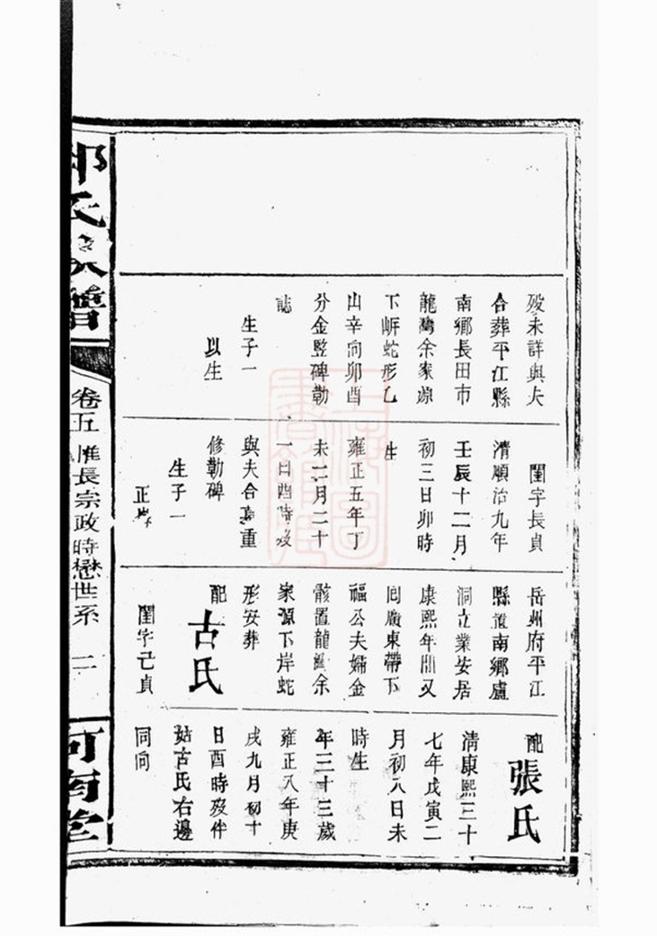 歿未詳與夫
合葬平江縣
南鄉長田市
龍灣余家源
下𡷗蛇形乙
山辛向卯酉
分金竪碑勒
誌
生子一
以生
閨字長貞
清順治九年
壬辰十二月
初三日卯時
生
雍正五年丁
未二月二十
一日酉時歿
與夫合墓重
修勒碑
生子一
正
岳州府平江
縣南鄉盧
洞立業安居
康熙年間又
囘廣東帶下
福公夫婦金
骸置龍灣余
家源下岸蛇
形安葬
配
古氏
閨字己貞
配
張氏
清康熙三十
七年戊寅二
月初八日未
時生
年三十三歲
雍正八年庚
戌九月初十
日酉時歿伴
姑古氏右邊
同向
氏族譜
卷五 惟長宗政時懋世系
二
河南堂